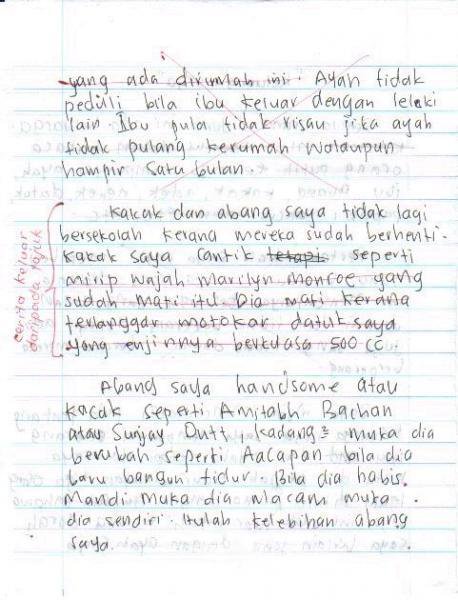 yang ada dirumlah ini. Ayah tidak
peduli bila ibu keluar dengan lelaki
lain. Ibu pula tidak risau jika ayah
tidak pulang kerumah walaupun
hampir satu bulan.
Kakak dan abang saya tidak lagi
bersekolah kerana mereka sudah berhenti.
Kakak saya cantik tetapi seperti
mirip wajah marilyn monroe yang
sudah mati itu. Dia mati kerana
terlanggar motokar datuk saya
yang enjinnya berkuasa 500 cc.
cerita keluar
daripada tajuk
Abang saya handsome atau
kacak seperti Amitabh Bachan
atau Sunjay Dutt, kadang2 muka dia
berubah seperti Aacapan bila dia
baru bangun tidur. Bila dia habis
mandi muka dia macam muka
dia sendiri. Itulah kelebihan abang
saya.